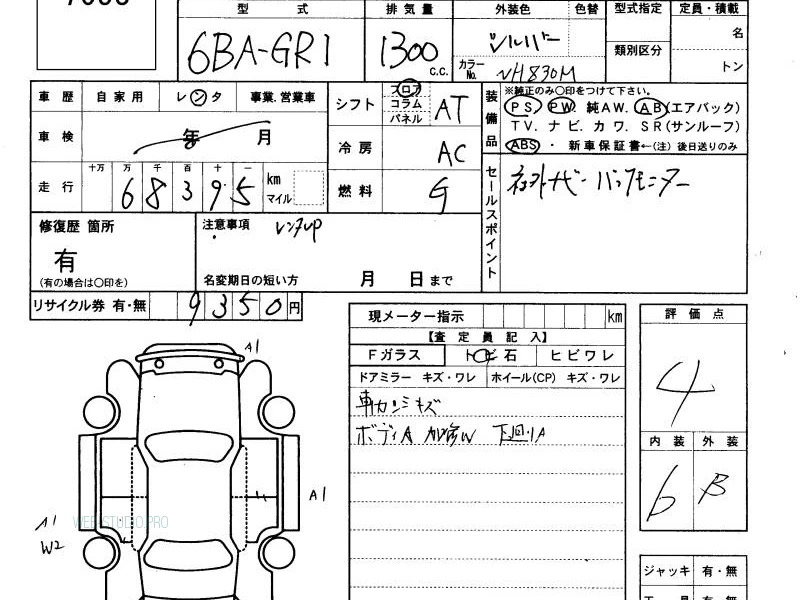 型 式 排気量 外装色 色替 型式指定 定員・積載
6BA-GR1 1300 c.c. シルバー カラーNo. NH830M 類別区分 名 トン
車歴 自家用 レンタ 事業.営業車 シフト フロア コラム パネル AT
装備品 ※純正のみ○印をつけて下さい。
PS, PW, 純AW. AB(エアバック)
TV. ナビ. カワ. SR(サンルーフ)
ABS ・ 新車保証書←(注) 後日送りのみ
車検 年 月 冷房 AC
走行 十万 万 千 百 十 一 68395 km マイル 燃料 G
セールスポイント
修復歴 箇所 有 (有の場合は○印を)
注意事項 レンタUP
名変期日の短い方 月 日まで
リサイクル券 有・無 9350円
現メーター指示 km
【査定員記入】
Fガラス トビ石 ヒビワレ
ドアミラー キズ・ワレ ホイール(CP) キズ・ワレ
ボディA
評価点
4
内装 外装
6 B
A1
A1
A1
W2
WEB-STUDIO.PRO
ジャッキ 有・無
工具 有・無